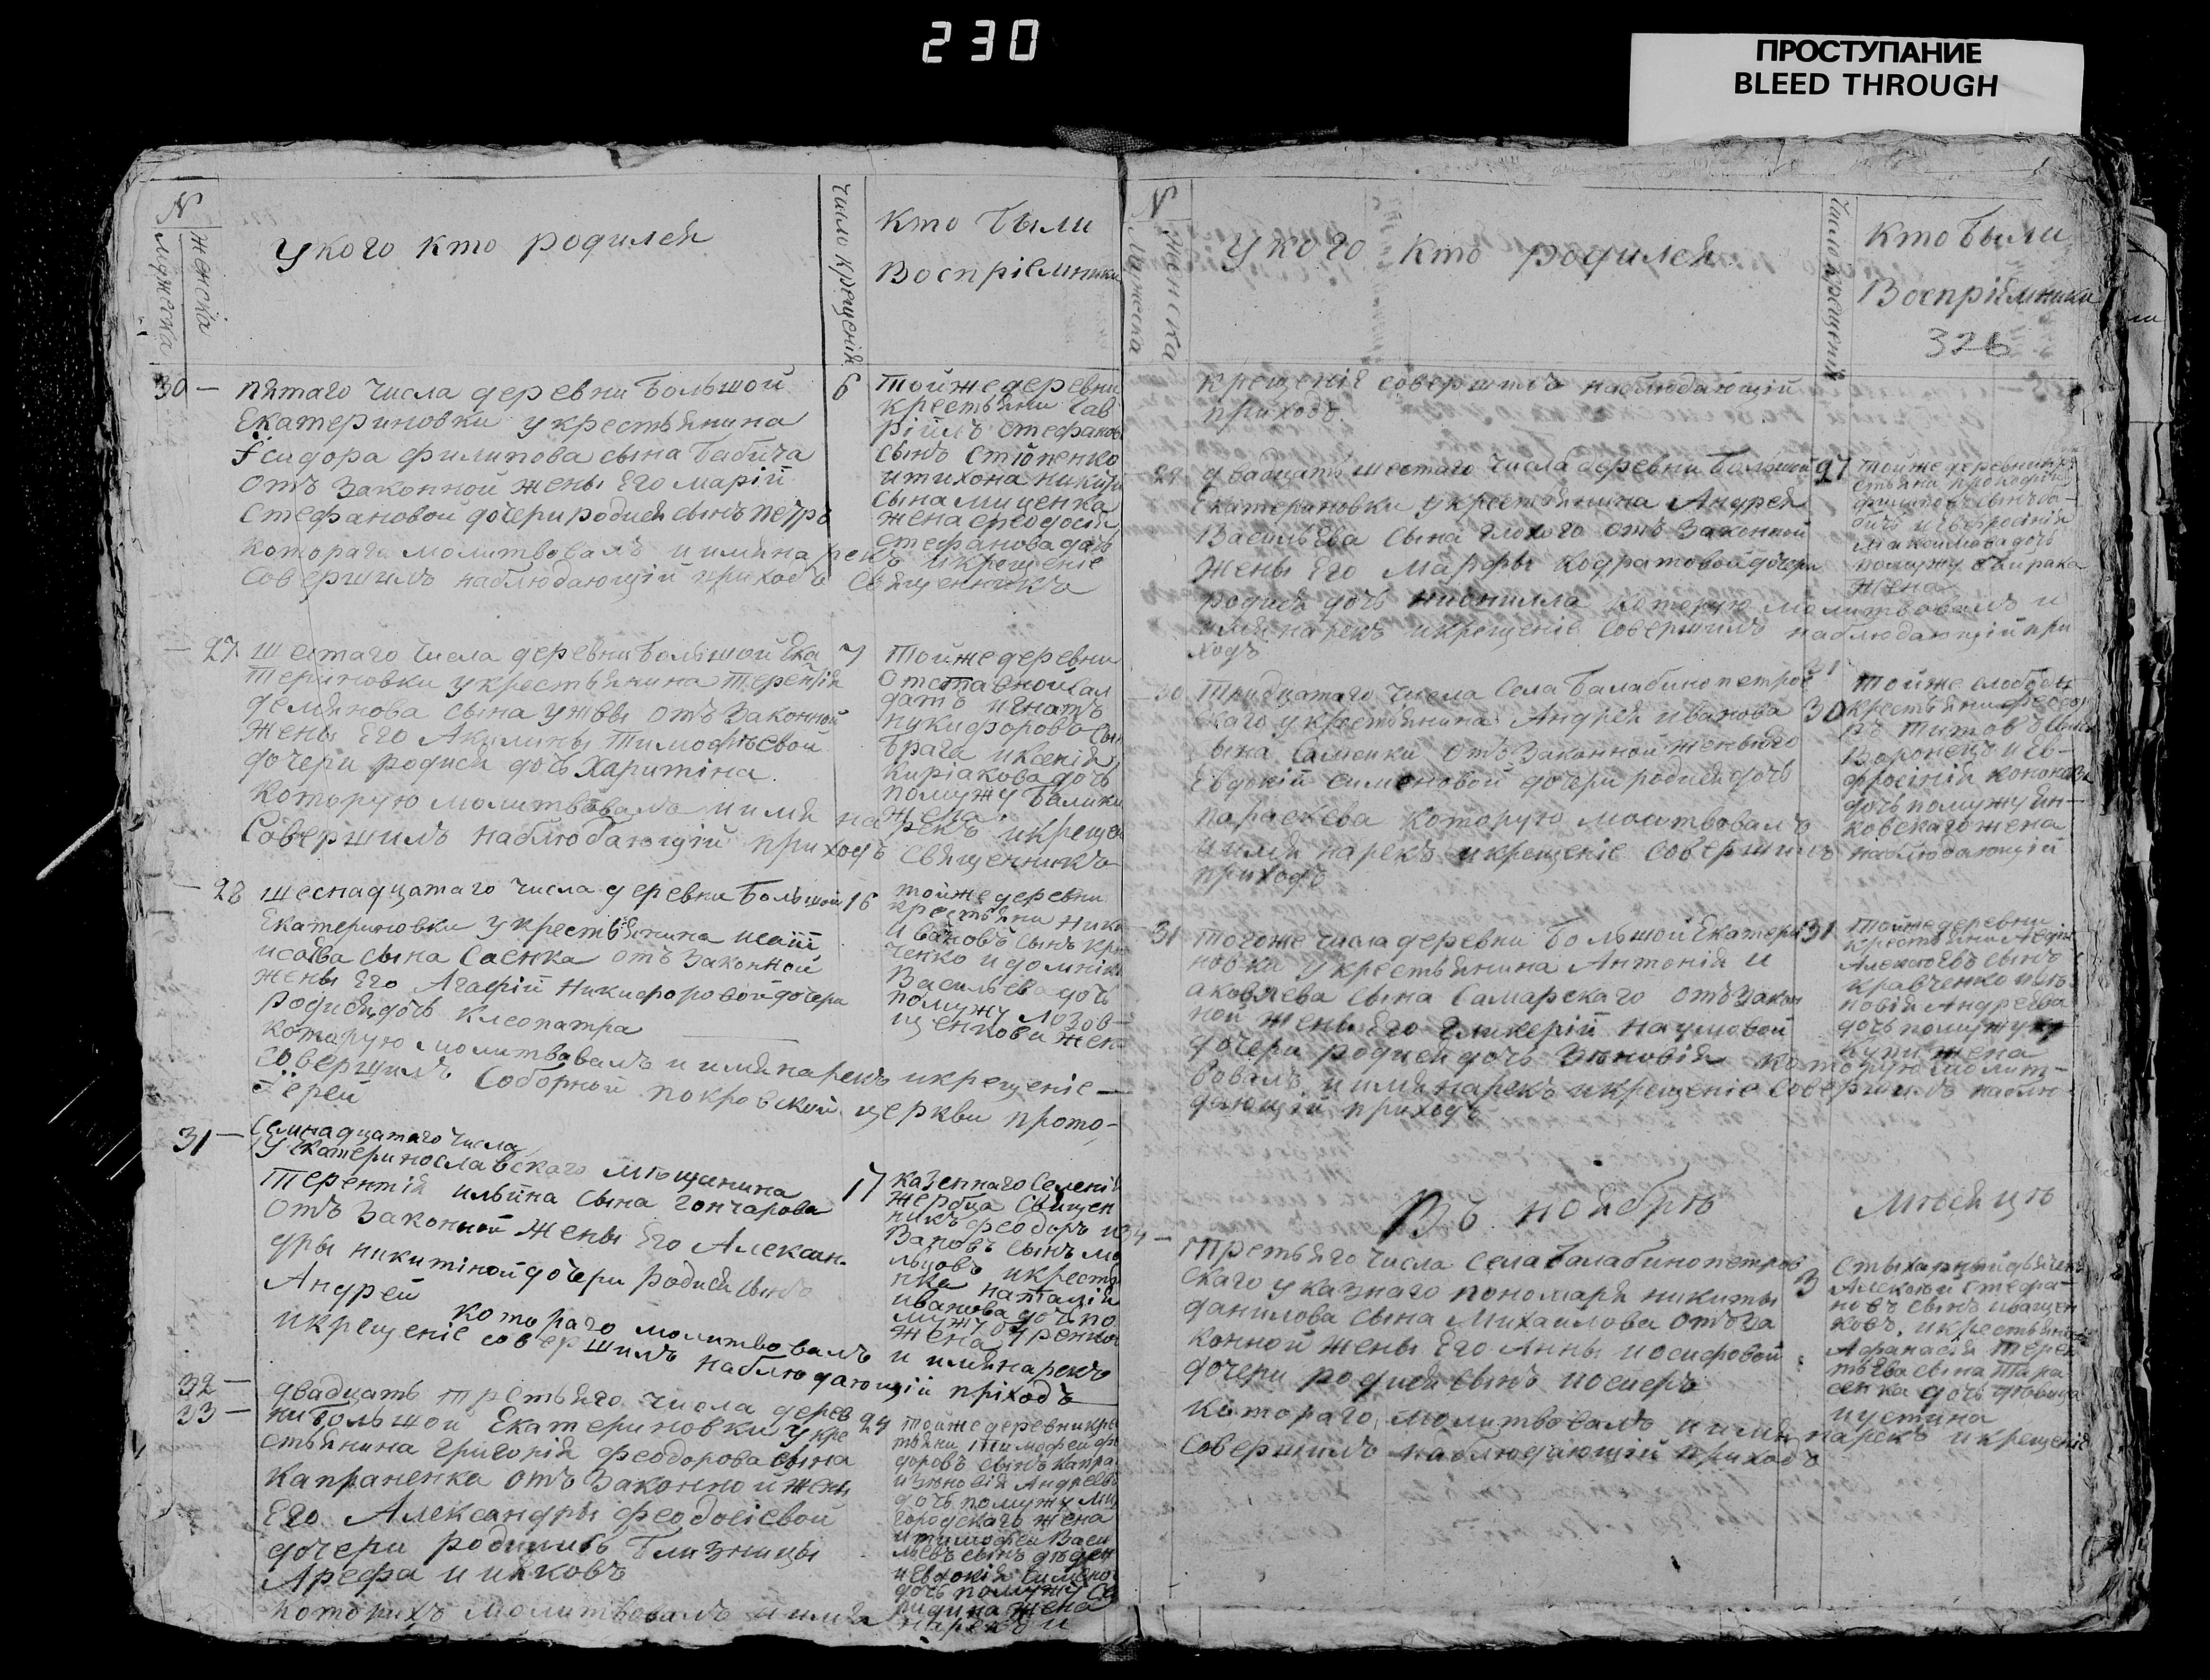 230
ПРОСТУПАНИЕ
BLEED THROUGH
N
мужеска
женска
У кого кто родился
Число крещенія
Кто были
Воспріемники
30 —
пятаго числа деревни Большой
Екатериновки у крестьянина
Ісидора филипова сына Бабича
отъ законной жены Его Маріи
Стефановой дочери родися сынъ петръ
котораго молитвовалъ и имя нарекъ и крещеніе
совершилъ наблюдающій приходъ священникъ
6
Той же деревни
крестьяни Гав
ріилъ Стефановъ
сынъ Стюпенко
и тихона никит
сына миценка
жена феодосія
Стефанова дочь
— 27
шестаго числа деревни Большой Ека
териновки у крестьянина Терентія
демянова сына ужвы отъ законной
жены Его Акилины Тимофъевой
дочери родися дочь Харитіна
которую молитвовалъ и имя нарекъ и креще
совершилъ наблюдающій приходъ священникъ
7
Той же деревни
отставной сал
датъ игнатъ
никифоровъ сын
брага и ксенія
киріакова дочь
помужу
жена
— 28
шеснадцатаго числа деревни Большой
Екатериновки у крестьянина исаіи
исаева сына Саенка отъ законной
жены Его Агафіи Никифоровой дочери
родися дочь клеопатра
которую молитвовалъ и имя нарекъ и крещеніе —
совершилъ Соборной покровской церкви прото-
Іерей
16
той же деревни
крестьяни Ники
Ивановъ сынъ кра
ченко и домнікі
Васильева дочь
помужу лозов-
щенкова жен
31 —
Семнадцатаго числа
У екатеринославскаго мѣщанина
Терентія ильина сына гончарова
отъ законной жены Его Алексан-
дры никитіной дочери родися сынъ
Андрей
котораго молитвовалъ и имя нарекъ
и крещеніе совершилъ наблюдающій пріходъ
17
казеннаго селенія
жеребца Священ
никъ феодоръ и
вановъ сынъ
и крестя
нка наталія
иванова дочь по
мужу
жена
32 —
33 —
двадцать третьяго числа дерев
ни Большой Екатериновки у кре
стьянина григорія феодорова сына
Капраненка отъ законной жены
Его Александры феодосіевой
дочери родились близницы
Арефа и иаковъ
которихъ молитвовалъ и имя нарекъ и
24
той же деревни кре
тьяни тимофей фе
доровъ сынъ капра
и зѣновія Андреева
дочь помужу
городскагъ жена
и тимофей Васи
льевъ сынъ
и евдокія
дочь помужу
жена
N
Мужеска
женска
У кого кто родился
Число крещенія
Кто были
Воспріемники
326
крещеніе совершилъ наблюдающій
приходъ
29
двадцать шестаго числа деревни Большой
Екатериновки у крестьянина Андрея
Васильева сына глохого отъ законной
жены Его Марфы кодратовой дочери
родися дочь неонилла которую молитвовалъ и
имя нарекъ и крещеніе совершилъ наблюдающій при
ходъ
27
той же деревни кре
стьяни прокофій
филиповъ сынъ
и евфросінія
Максимова дочь
помужу
жена
— 30
Тридцатаго числа Села Балабино петров
скаго у крестьянина Андрея иванова
сына Саменки отъ законной жены его
Евдокіи симоновой дочери родися дочь
параскева которую молитвовалъ
и имя нарекъ и крещеніе совершилъ наблюдающій
приходъ
31
30
той же слободы
крестьяни феодо
ръ титовъ сынъ
Воронецъ и ев-
фросінія кононова
дочь помужу
ковскаго жена
31
того же числа деревни Большой Екатери
новки у крестьянина Антонія и
аковлева сына Самарскаго отъ закон
ной жены Его гликеріи наумовой
дочери родися дочь Зѣновія которую молит-
вовалъ и имя нарекъ и крещеніе совершилъ наблю
дающій приходъ
31
той же деревни
крестьяни
Алексѣевъ сынъ
кравченко и зѣ
новія Андреева
дочь помужу
жена
Въ ноябрѣ мѣсяцѣ
34 —
третьяго числа села Балабино петров
скаго указнаго пономаря никиты
данилова сына Михаилова отъ за
конной жены Его Анны иосифовой
дочери родися сынъ
котораго молитвовалъ и имя нарекъ и крещеніе
совершилъ наблюдающій приходъ
3
Стыхарный дьячекъ
Алексій Стефа-
новъ сынъ иващен
ковъ и крестьянина
Афанасія терен
тьева сына Тара
сенка дочь дѣвица
иустина